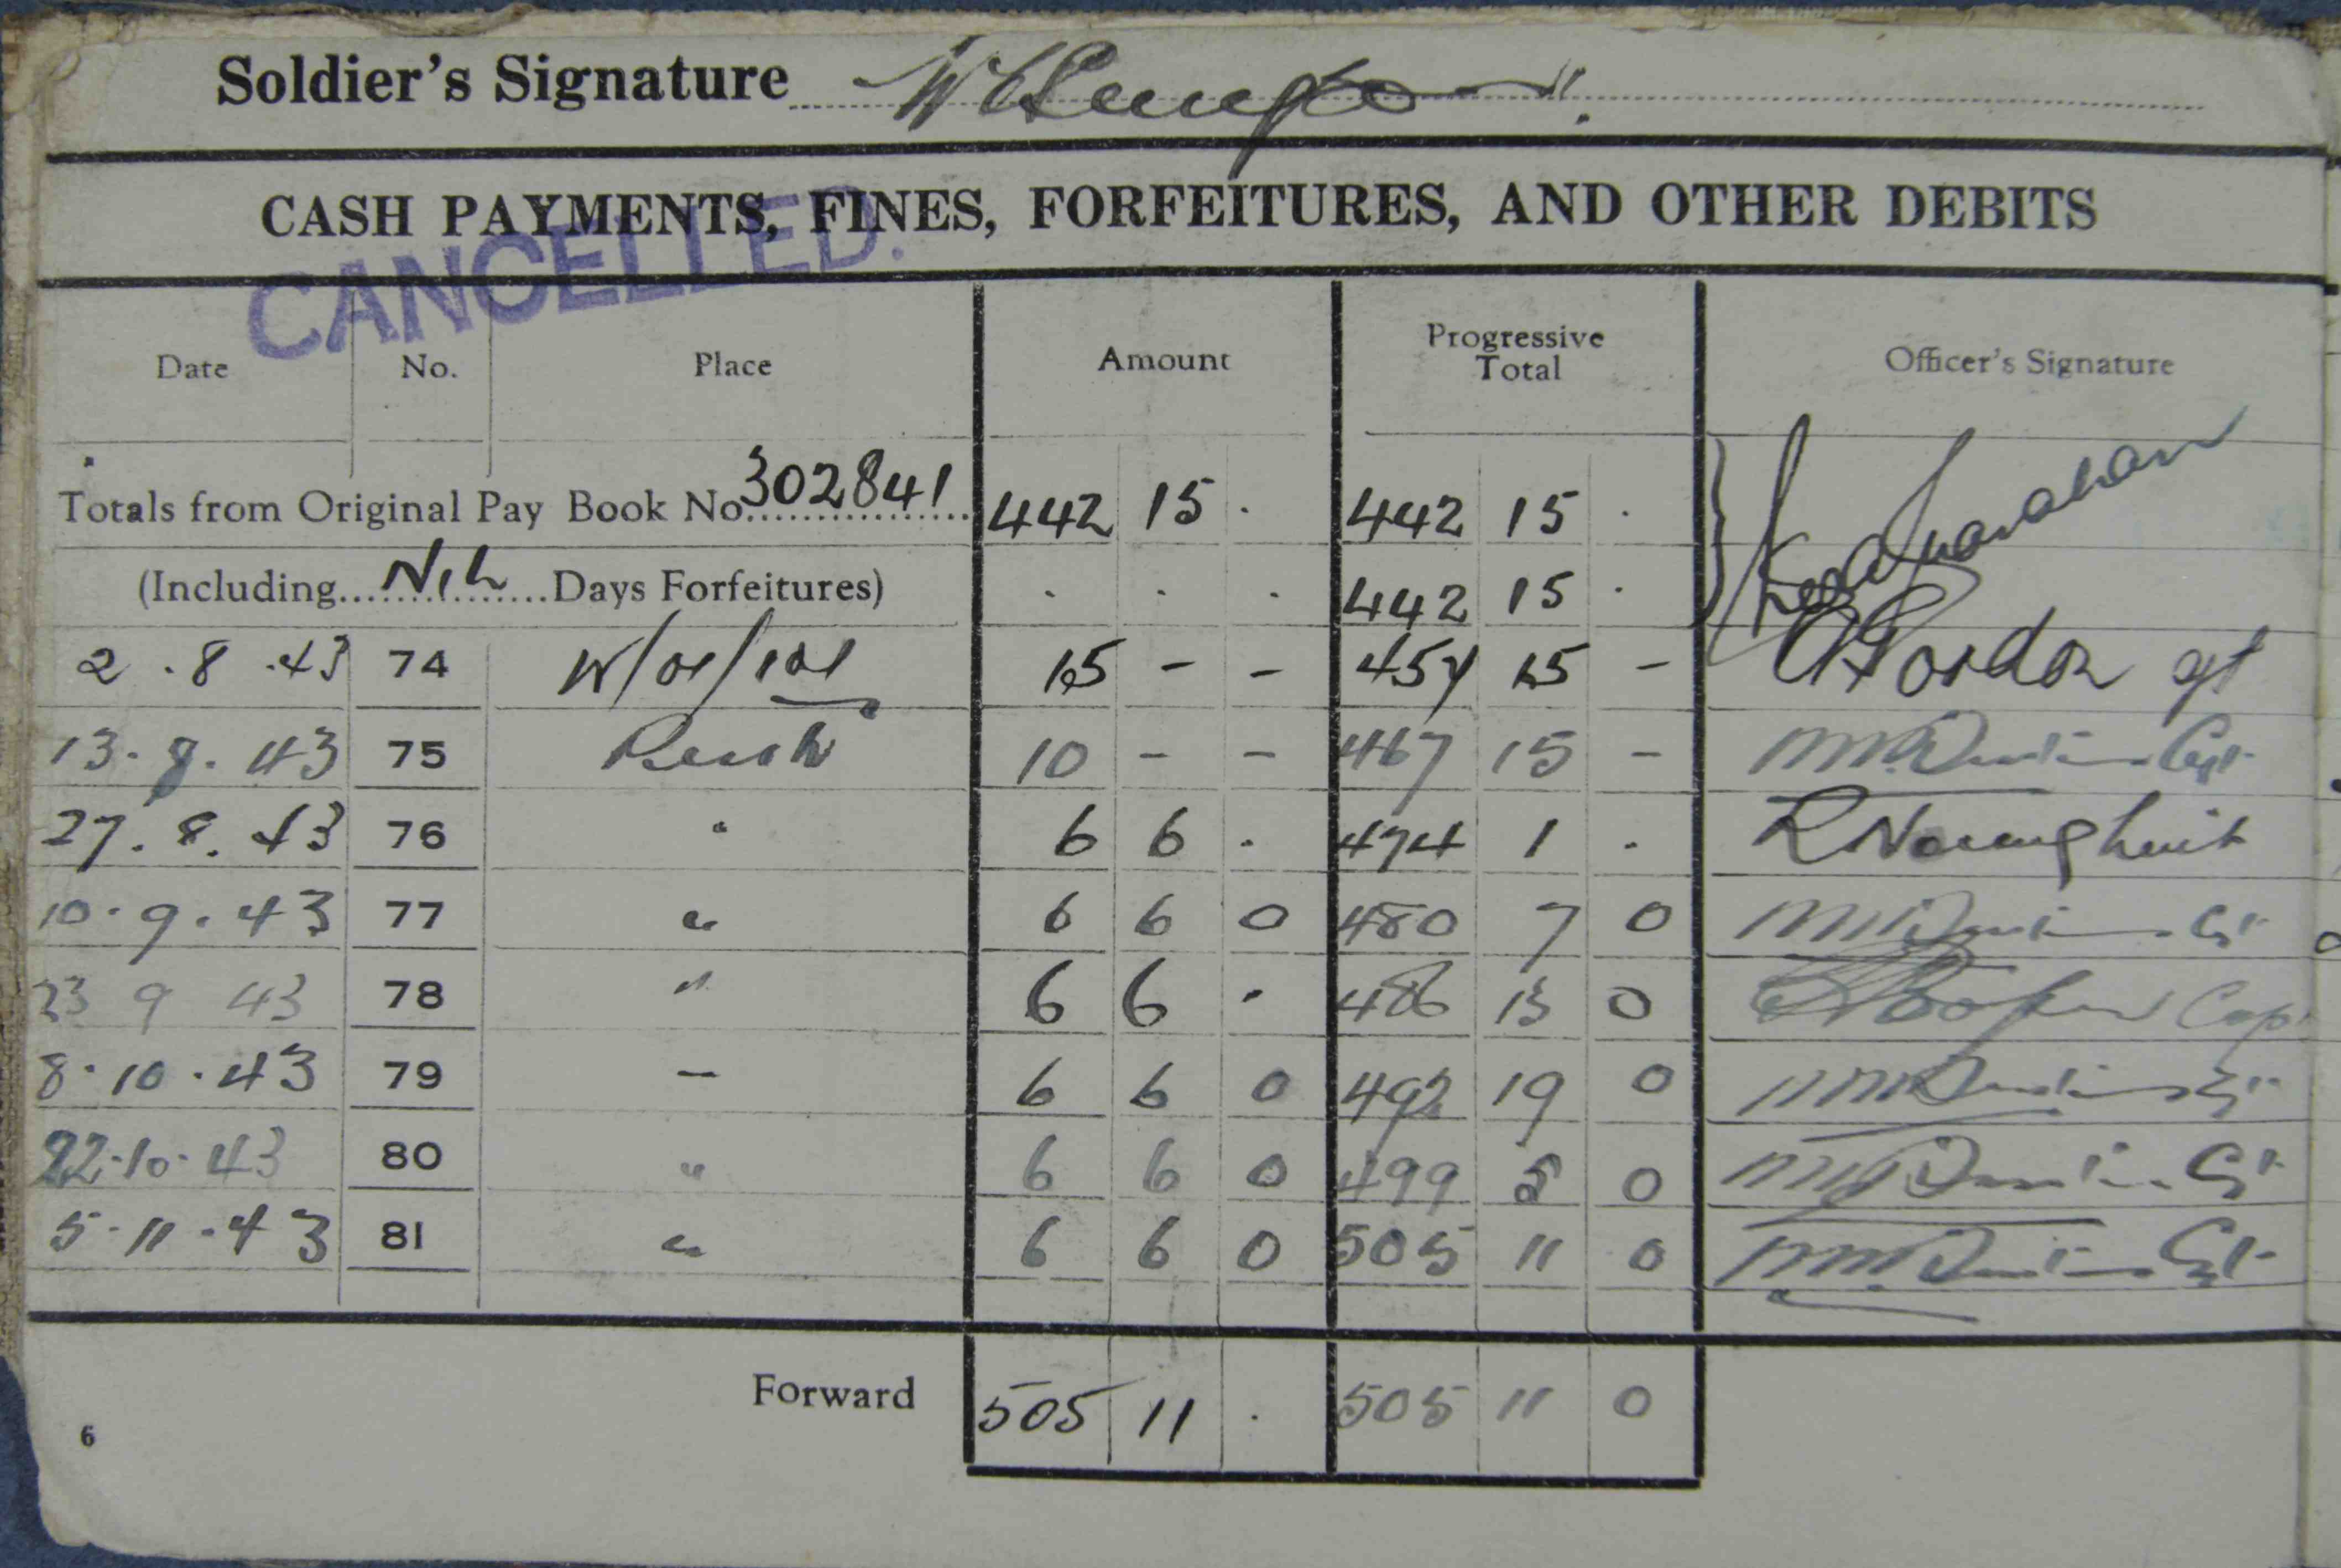 Soldier's Signature
CASH PAYMENTS, FINES, FORFEITURES, AND OTHER DEBITS
CANCELLED.
Date No. Place Amount Progressive Total Officer's Signature
Totals from Original Pay Book No. 302841 442 15 . 442 15 .
(Including Nil Days Forfeitures) . . . 442 15 .
2 . 8 . 43 74 15 - - 457 15 - Gordon
13 . 8 . 43 75 Perth 10 - - 467 15 -
27 . 8 . 43 76 " 6 6 . 474 1 .
10 . 9 . 43 77 " 6 6 0 480 7 0
23 9 43 78 " 6 6 . 486 13 0 Cap
8 . 10 . 43 79 – 6 6 0 492 19 0
22 . 10 . 43 80 " 6 6 0 499 5 0
5 . 11 . 43 81 " 6 6 0 505 11 0
Forward 505 11 . 505 11 0
6